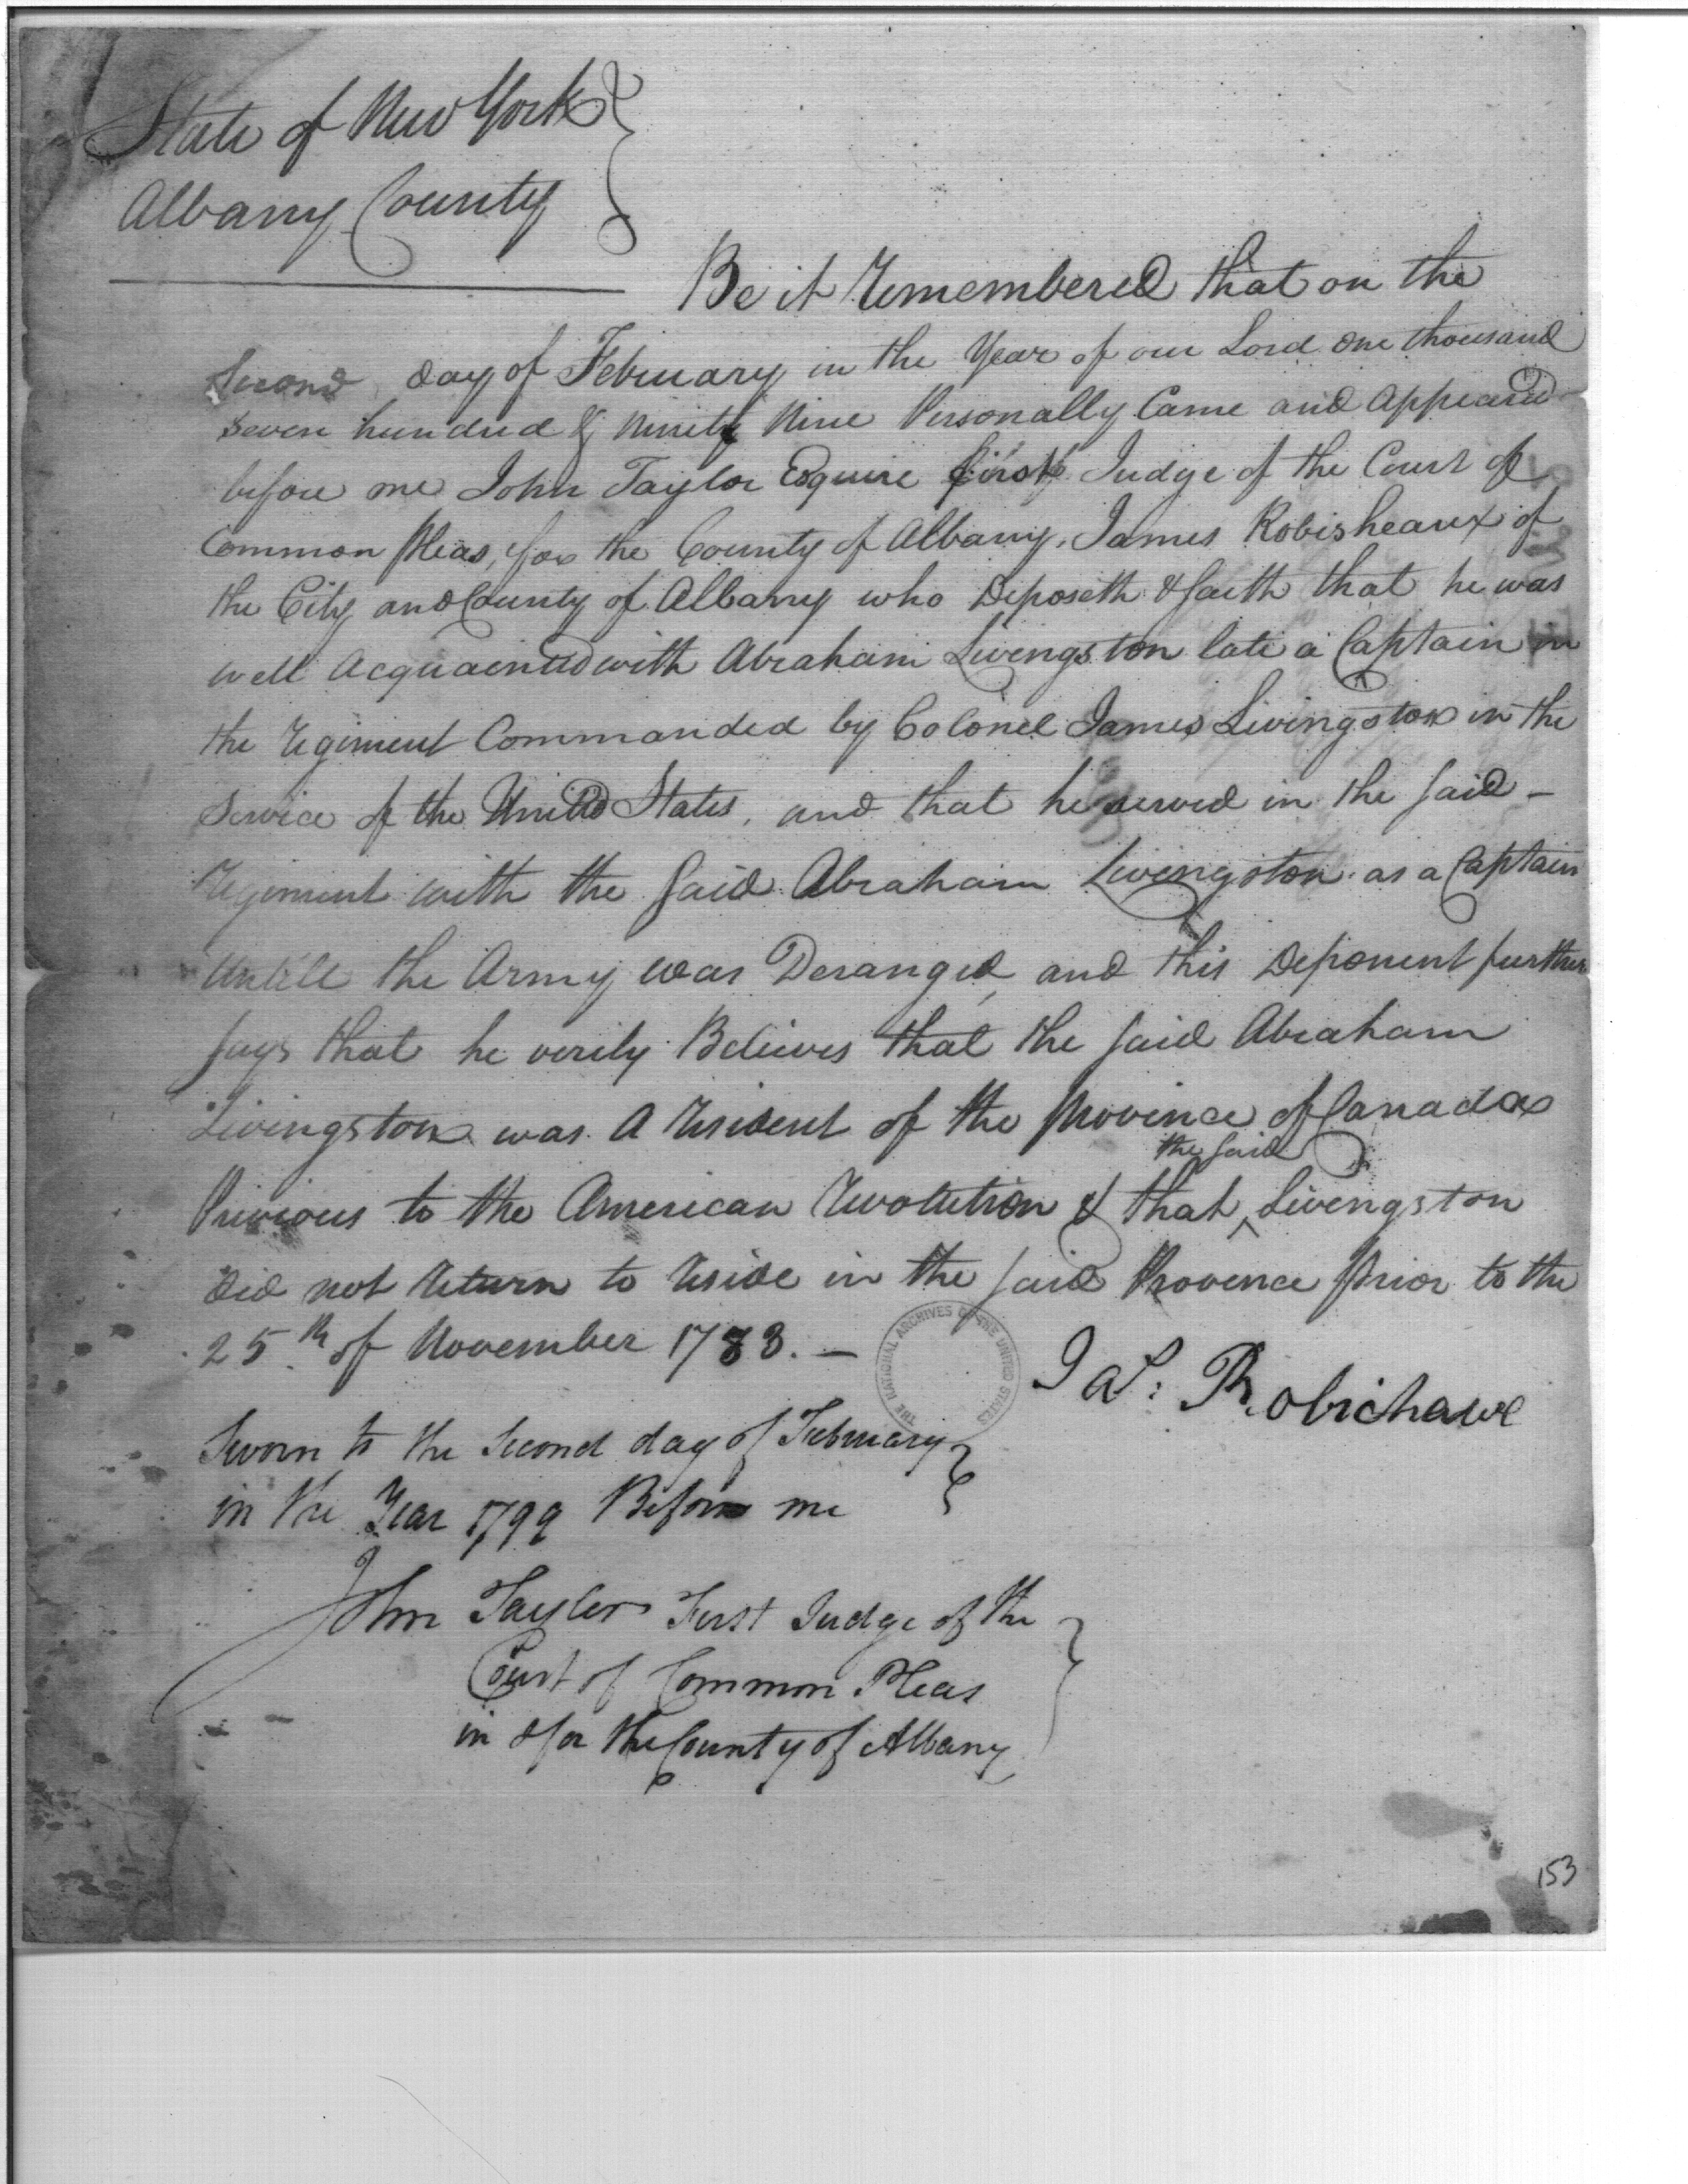 State of New York
Albany County
Be it Remembered that on the
Second day of February in the Year of our Lord one thousand
Seven hundred & Ninety Nine Personally Came and Appeared
before me John Taylor Esquire first Judge of the Court of
Common Pleas, for the County of Albany, James Robisheaux of
the City and County of Albany who Deposeth & saith that he was
well Acquainted with Abraham Livingston late a Captain in
the Regiment Commanded by Colonel James Livingston in the
Service of the United States, and that he served in the said -
Regiment with the said Abraham Livingston as a Captain
Untill the Army was Deranged, and this Deponent further
says that he verily Believes that the said Abraham
Livingston was A Resident of the Province of Canada
Previous to the American Revolution & that ^ the said Livingston
did not Return to Reside in the said Provence Prior to the
25th of November 1783. -
Jas: Robichaux
Sworn to the Second day of February
in the Year 1799 Before me
John Tayler First Judge of the
Court of Common Pleas
in & for the County of Albany
THE NATIONAL ARCHIVES OF THE UNITED STATES
153